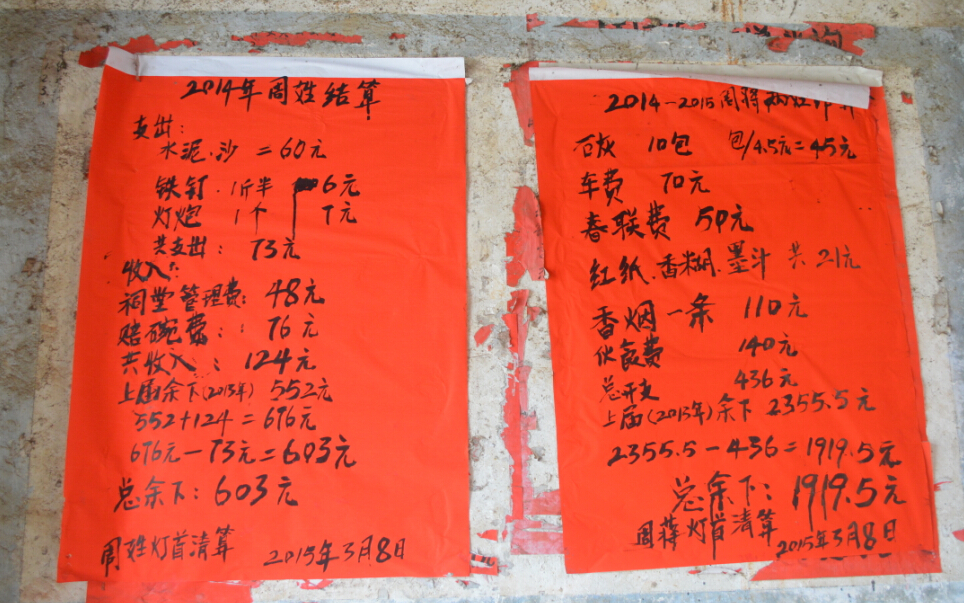 2014年周姓结算
支出:
水泥.沙 =60元
铁钉.1斤半 6元
灯炮 1个 7元
共支出: 73元
收入:
祠堂管理费: 48元
赔碗费: 76元
共收入: 124元
上届余下(2013年) 552元
552+124=676元
676元-73元=603元
总余下:603元
周姓灯首清算 2015年3月8日
2014-2015周蒋
石灰 10包 包/4.5元=45元
车费 70元
春联费 50元
红纸.香糊.墨斗 共21元
香烟一条 110元
伙食费 140元
总开支 436元
上届(2013年)余下 2355.5元
2355.5-436=1919.5元
总余下:1919.5元
周蒋灯首清算 2015年3月8日